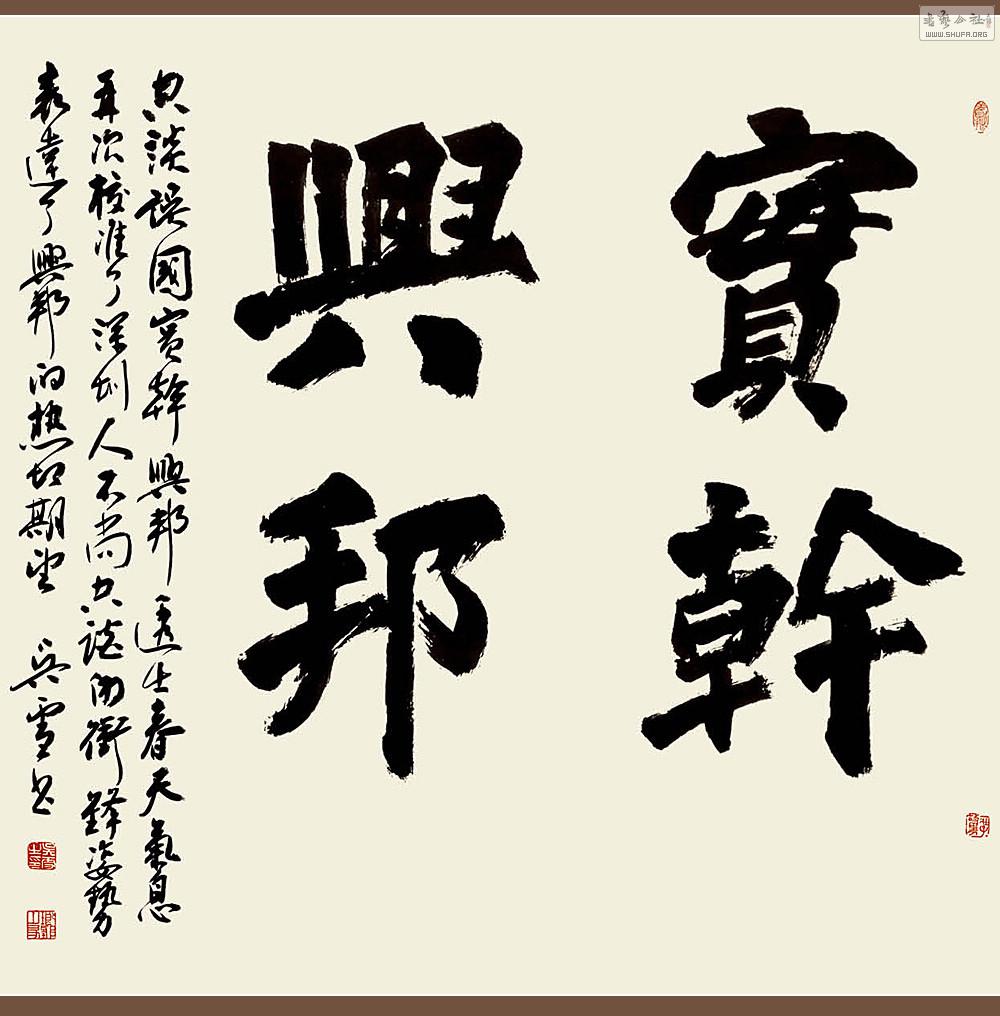 實幹
興邦
空談誤國實幹興邦透出春天氣息
再次校准了深圳人不尚空談的衝鋒姿勢
表達了興邦的热切期望 吳雪书
書藝公社
WWW.SHUFA.ORG